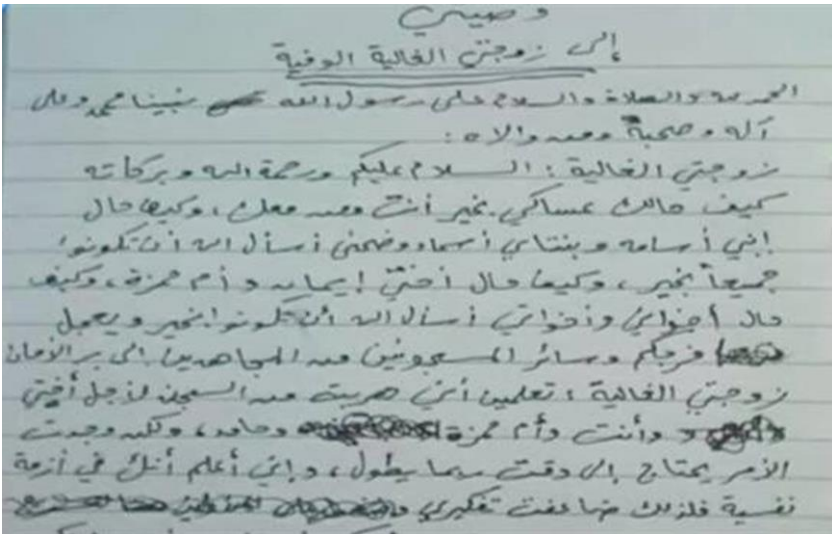 وصيتي
إلى زوجتي الغالية الوفية
الحمد لله والصلاة والسلام على رسول الله نبينا محمد وعلى
آله وصحبه ومن والاه :
زوجتي الغالية : السلام عليكم ورحمة الله وبركاته
كيف حالك عساكي بخير أنت ومن معك ، وكيف حال
إبني أسامه وبنتاي أسماء وضحى أسأل الله أن تكونوا
جميعاً بخير ، وكيف حال أختيّ إيمان وأم حمزة ، وكيف
حال أخواتي وأخواتي أسأل الله أن تكونوا بخير ويعجل
فرجكم وسائر المسجونين من المجاهدين إلى بر الأمان
زوجتي الغالية : تعلمين أني هربت من السجن لأجل أختي
وأنت وأم حمزة وحامد ، ولكن وجدت
الأمر يحتاج إلى وقت ربما يطول ، وإني أعلم أنك في أزمة
نفسية فلذلك ضاعفت تفكيري